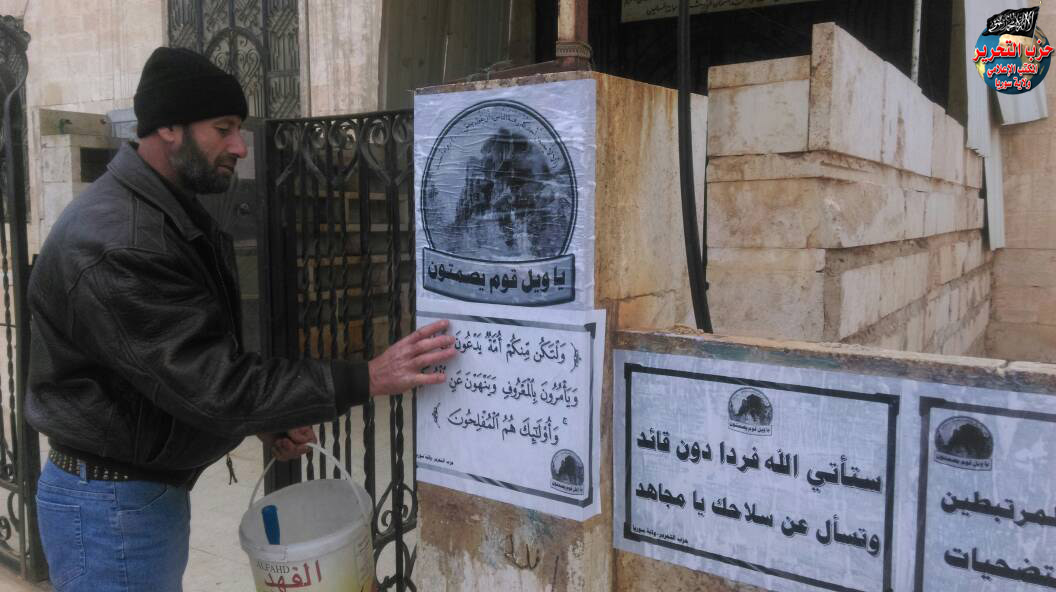 حزب التحرير
المكتب الإعلامي
ولاية سوريا
يا ويل قوم يصمتون
﴿ وَلْتَكُن مِّنكُمْ أُمَّةٌ يَدْعُونَ
وَيَأْمُرُونَ بِالْمَعْرُوفِ وَيَنْهَوْنَ عَنِ
وَأُوْلَٰئِكَ هُمُ الْمُفْلِحُونَ ﴾
حزب التحرير - ولاية سوريا
يا ويل قوم يصمتون
ستأتي الله فردا دون قائد
وتسأل عن سلاحك يا مجاهد
حزب التحرير - ولاية سوريا
يا ويل قوم يصمتون
لمرتبطين
تضحيات
ALFAHD
الفهد